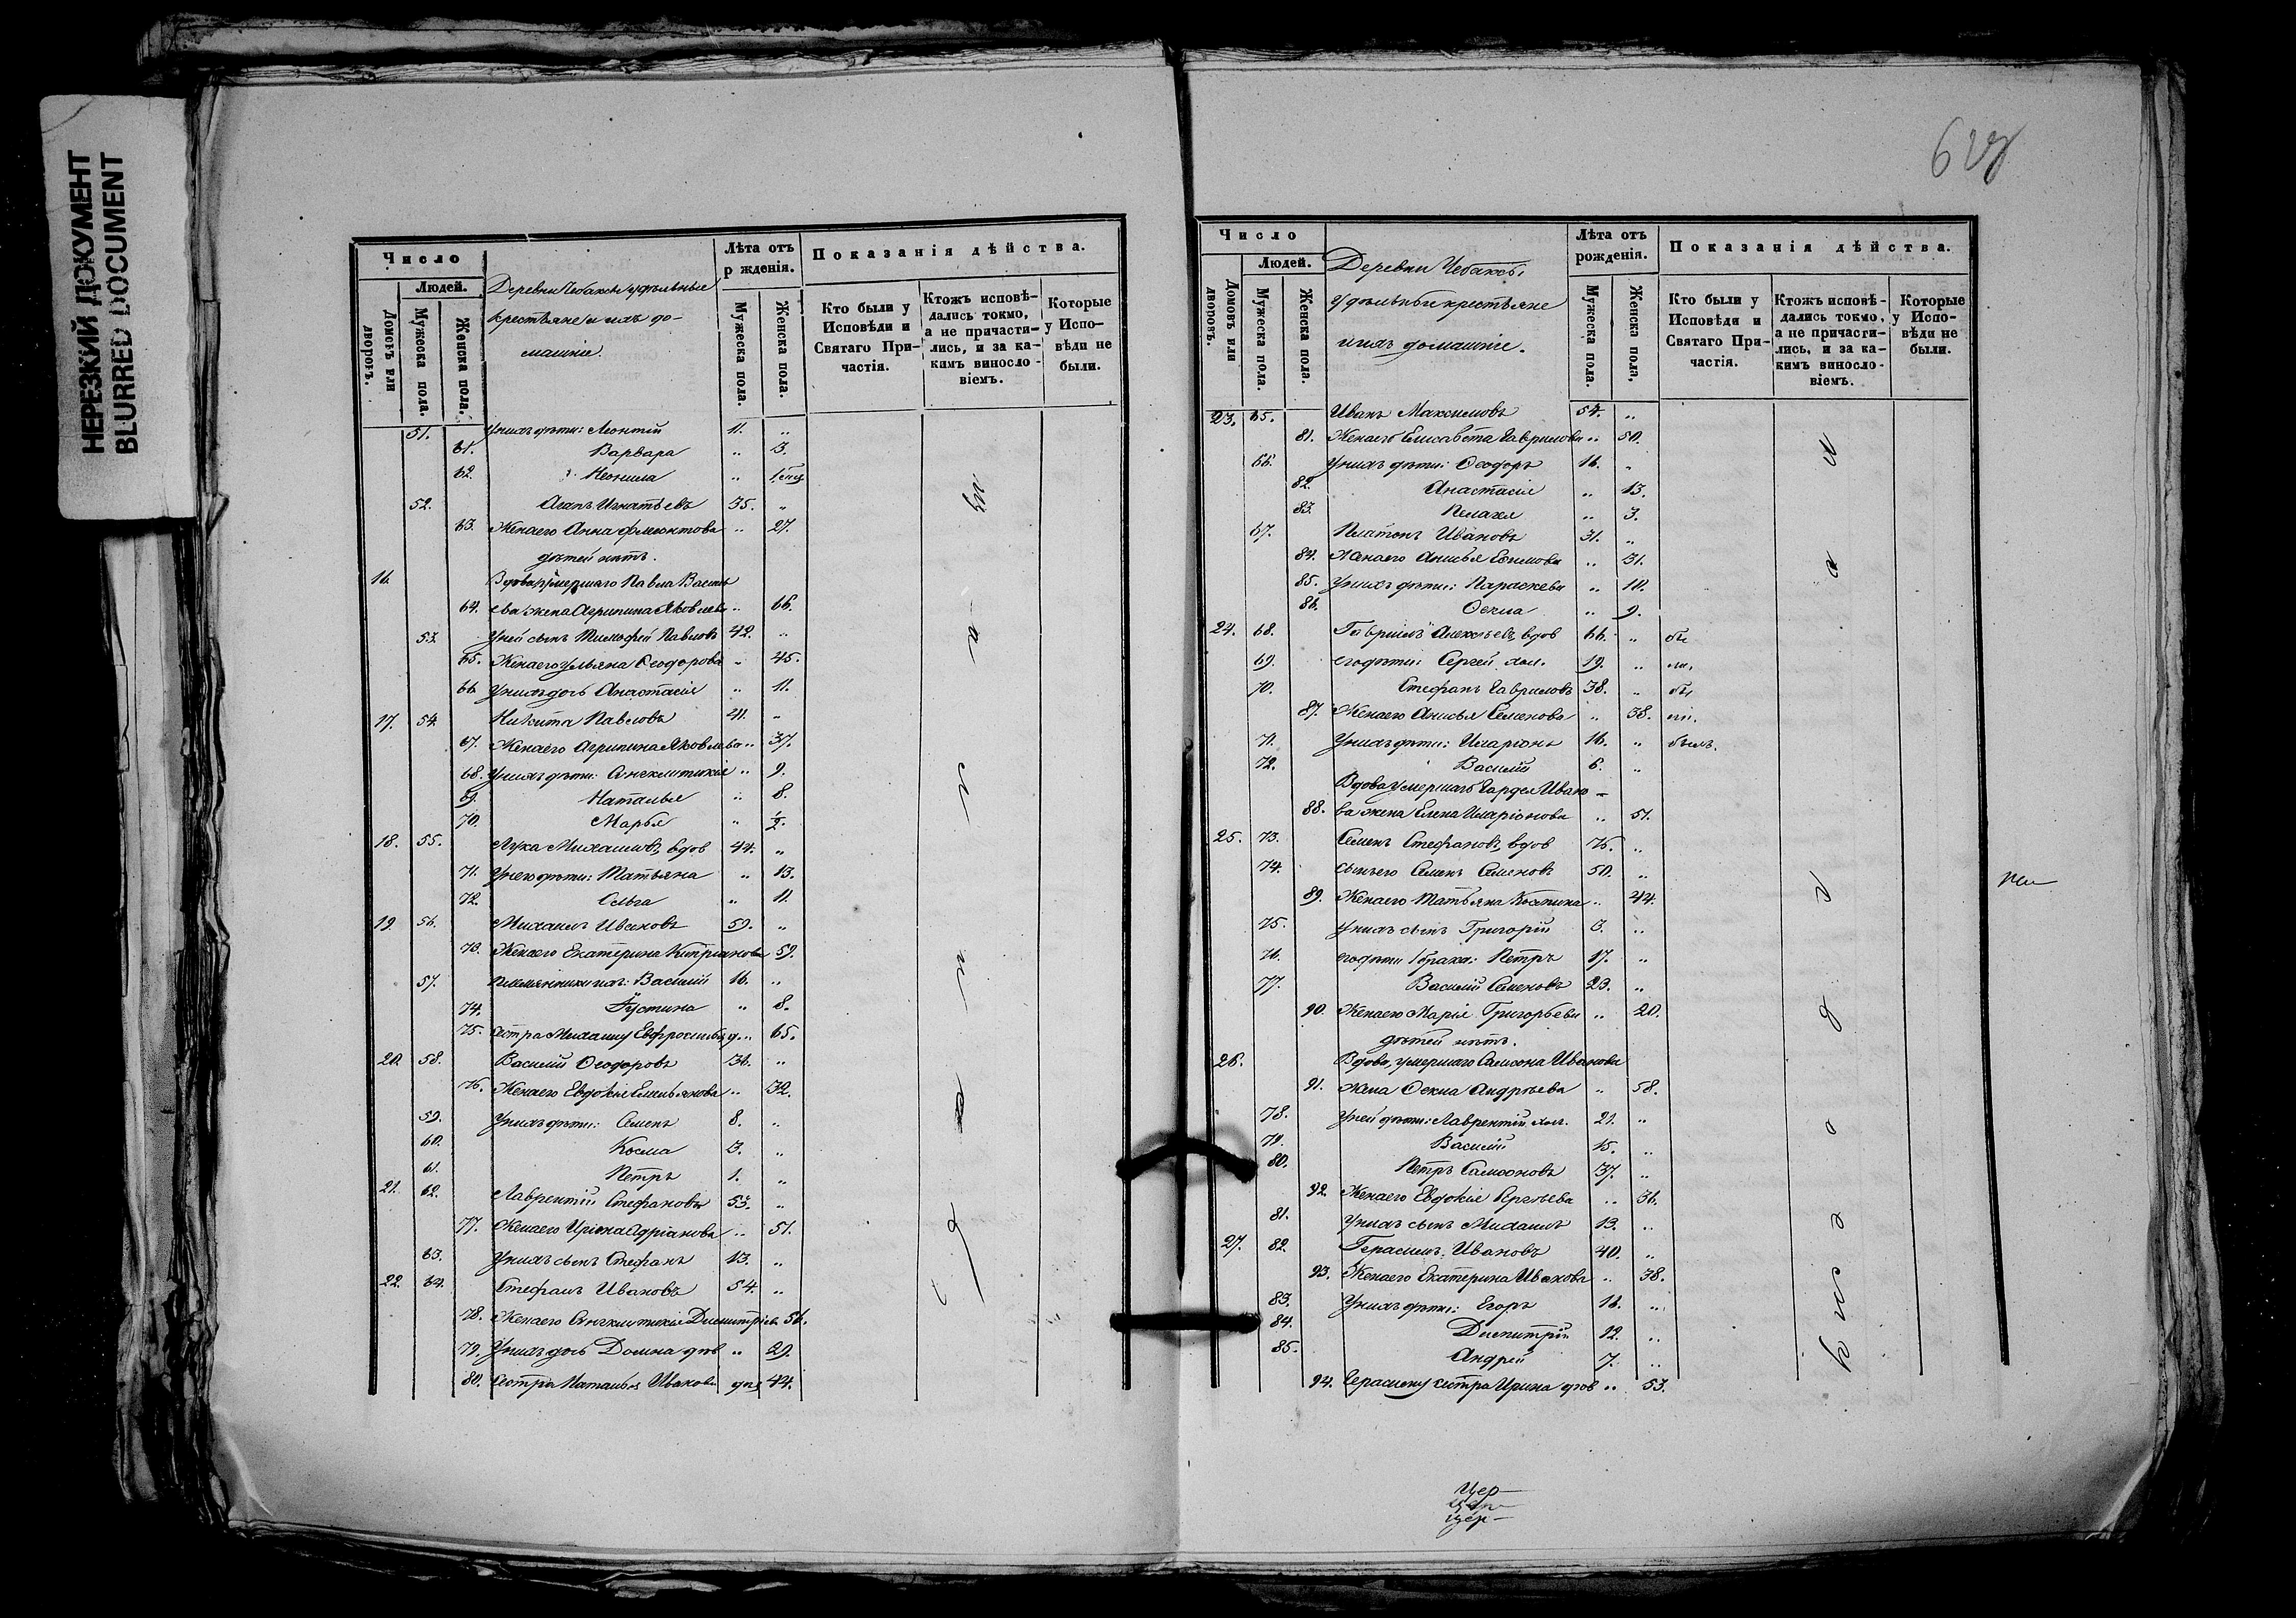 НЕРЕЗКИЙ ДОКУМЕНТ
BLURRED DOCUMENT
Число
Людей.
Домовъ или дворовъ.
Мужеска пола.
Женска пола.
Деревни Чебаксы удѣльные
крестьяне и ихъ до-
машніе.
Лѣта отъ
р жденія.
Мужеска пола.
Женска пола.
Показанія дѣйства.
Кто были у Исповѣди и Святаго При-частія.
Ктожъ исповѣ-дались токмо, а не причасти-лись, и за ка-кимъ винослo-віемъ.
Которые у Испо-вѣди не были.
51. У нихъ дѣти: Леонтій 11. „
61. Варвара „ 3.
62. Неонила „
52. Агапъ Игнатьевъ 35. „
63. Жена его Анна „ 27.
дѣтей нѣтъ.
16. Вдова умершаго Павла Василь
64. ева жена Агрипина Яковлева „ 66.
53. У ней сынъ Тимофей Павловъ 42. „
65. Жена его Ульяна Ѳеодорова „ 45.
66. У нихъ дочь Анастасія „ 11.
17. 54. Никита Павловъ 41. „
67. Жена его Агрипина Яковлева „ 37.
68. У нихъ дѣти: Синклитикія „ 9.
69. Наталья „ 8.
70. Марья „ ½.
18. 55. Лука Михаиловъ, вдов 44. „
71. У него дѣти: Татьяна „ 13.
72. Ольга „ 11.
19. 56. Михаилъ Ивановъ 59. „
73. Жена его Екатерина Кипріанова 59.
57. племянники ихъ: Василій 16. „
74. Іустина „ 8.
75. Сестра Михаилу Евфросинья д. „ 65.
20. 58. Василій Ѳеодоровъ 36. „
76. Жена его Евдокія Емельянова „ 32.
59. У нихъ дѣти: Семенъ 8. „
60. Косма 3. „
61. Петръ 1. „
21. 62. Лаврентій Стефановъ 53. „
77. Жена его Ирина Адріанова „ 51.
63. У нихъ сынъ Стефанъ 13. „
22. 64. Стефанъ Ивановъ 54. „
78. Жена его Синклитикія Димитріева 56.
79. У нихъ дочь Домна дѣв „ 29.
80. Сестра Наталья Иванова 44.
Число
Людей.
Домовъ или дворовъ.
Мужеска пола.
Женска пола.
Деревни Чебаксы,
удѣльные крестьяне
и ихъ домашніе.
Лѣта отъ
рожденія.
Мужеска пола.
Женска пола,
Показанія дѣйства.
Кто были у Исповѣди и Святаго При-частія.
Ктожъ исповѣ-дались токмо, а не причасти-лись, и за ка-кимъ винослo-віемъ.
Которые у Испо-вѣди не были.
23. 65. Иванъ Максимовъ 54. „
81. Жена его Елисавета Гаврилова „ 50.
66. У нихъ дѣти: Ѳеодоръ 16. „
82. Анастасія „ 13.
83. Пелагея „ 3.
67. Платонъ Ивановъ 31. „
84. Жена его Анисья Ефимова „ 31.
85. У нихъ дѣти: Параскева „ 10.
86. Ѳекла „ 9.
24. 68. Гавріилъ Алексѣевъ, вдов 66. „ бы
69. его дѣти: Сергей хол. 19. „ ли,
70. Стефанъ Гавриловъ 38. „ бы
87. Жена его Анисья Семенова „ 38. ли.
71. У нихъ дѣти: Иларіонъ 16. „ былъ.
72. Василій 6. „
Вдова умершаго Гордея Ивано-
88. ва жена Елена Иларіонова „ 51.
25. 73. Семенъ Стефановъ, вдов 76. „
74. сынъ его Семенъ Семеновъ 50. „
89. Жена его Татьяна Костина „ 44.
75. У нихъ сынъ Григорій 3. „
76. его дѣти 1 брака: Петръ 17. „
77. Василій Семеновъ 23. „
90. Жена его Марія Григорьева „ 20.
дѣтей нѣтъ.
26. Вдова, умершаго Самсона Иванова
91. жена Ѳекла Андрѣева „ 58.
78. У ней дѣти: Лаврентій хол. 21. „
79. Василій 15. „
80. Петръ Самсоновъ 37. „
92. Жена его Евдокія Сергѣева „ 36.
81. У нихъ сынъ Михаилъ 13. „
27. 82. Герасимъ Ивановъ 40. „
93. Жена его Екатерина Иванова „ 38.
83. У нихъ дѣти: Егоръ 16. „
84. Димитрій 12. „
85. Андрей 7. „
94. Герасиму сестра Ирина дѣв „ 53.
Цер-
Цер-
Цер-